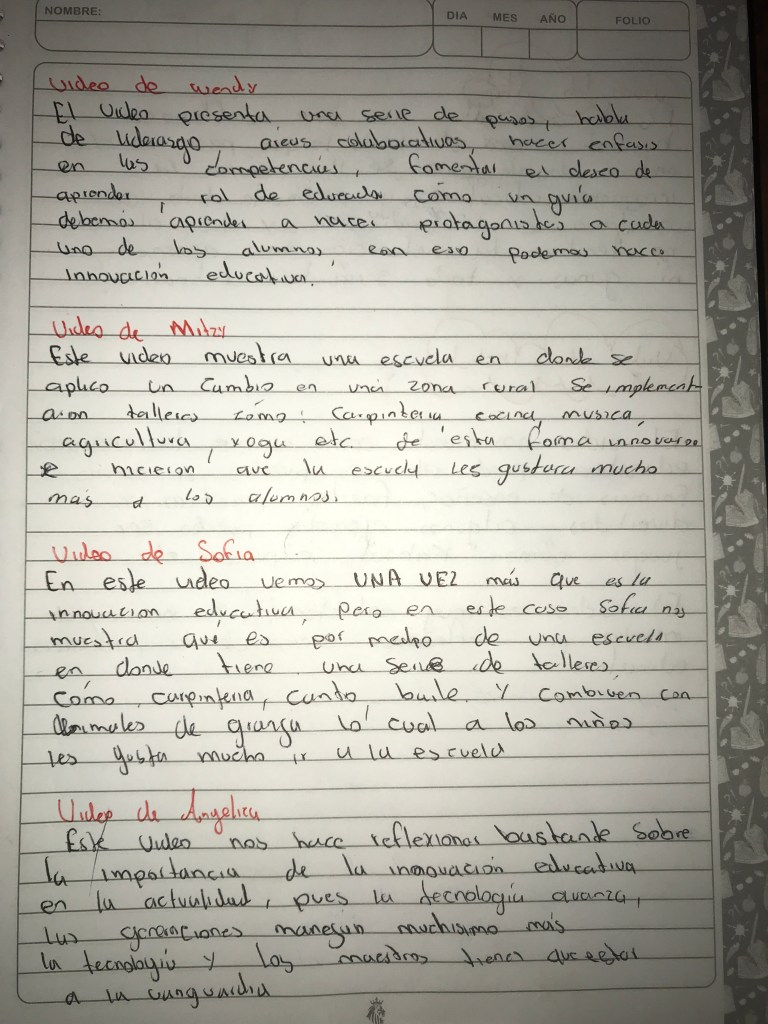 NOMBRE:
DIA MES AÑO
FOLIO
Video de wendy
El video presenta una serie de pasos, habla
de liderasgo, áreas colaborativas, hacer enfasis
en las competencias, fomentar el deseo de
aprender, rol de educador como un guía
debemos aprender a hacer protagonistas a cada
uno de los alumnos, con eso podemos hacer
innovación educativa.
Video de Mitzy
Este video muestra una escuela en donde se
aplico un cambio en una zona rural Se implement-
aron talleres como: Carpinteria cocina, musica,
agricultura, yoga etc. de esta forma innovaron
e hicieron que la escuela les gustara mucho
más a los alumnos.
Video de Sofia
En este video vemos UNA VEZ más que es la
innovacion educativa, pero en este caso Sofia nos
muestra que es por medio de una escuela
en donde tiene una serie de talleres
como carpinteria, canto, baile y combiven con
animales de granja lo cual a los niños
les gusta mucho ir a la escuela
Video de Angelica
Este video nos hace reflexionar bastante sobre
la importancia de la innovación educativa
en la actualidad, pues la tecnología avanza,
las generaciones manejan muchisimo más
la tecnología y los maestros tienes que estar
a la vanguardia